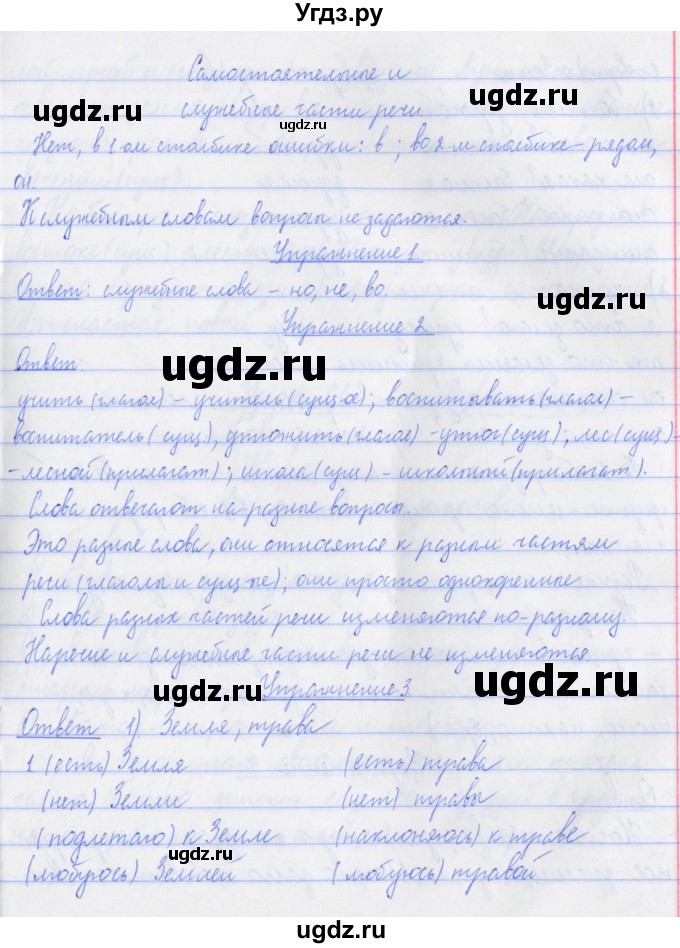 Угдз.ру
Самостоятельные и
служебные части речи.
Нет, в 1-ом столбике ошибки: в ; во 2-м столбике - рядом,
он.
К служебным словам вопросы не задаются.
Упражнение 1
Ответ: служебные слова – но, не, во.
Упражнение 2
Ответ:
учить (глагол) – учитель (сущ-ое); воспитывать (глагол) –
воспитатель (сущ), утюжить (глагол) - утюг (сущ), лес (сущ) -
- лесной (прилагат); школа (сущ) – школьный (прилагат).
Слова отвечают на разные вопросы.
Это разные слова, они относятся к разным частям
речи (глаголы и сущ-ые); они просто однокоренные
Слова разных частей речи изменяются по-разному.
Наречие и служебные части речи не изменяются
Упражнение 3
Ответ 1) Земля, трава
1 (есть) Земля (есть) трава
(нет) Земли (нет) травы
(подлетаю) к Земле (наклоняюсь) к траве
(любуюсь) Землей (любуюсь) травой
ugdz.ru
ugdz.ru
ugdz.ru
ugdz.ru
ugdz.ru
ugdz.ru
ugdz.ru
ugdz.ru
ugdz.ru
ugdz.ru
Угдз.ру